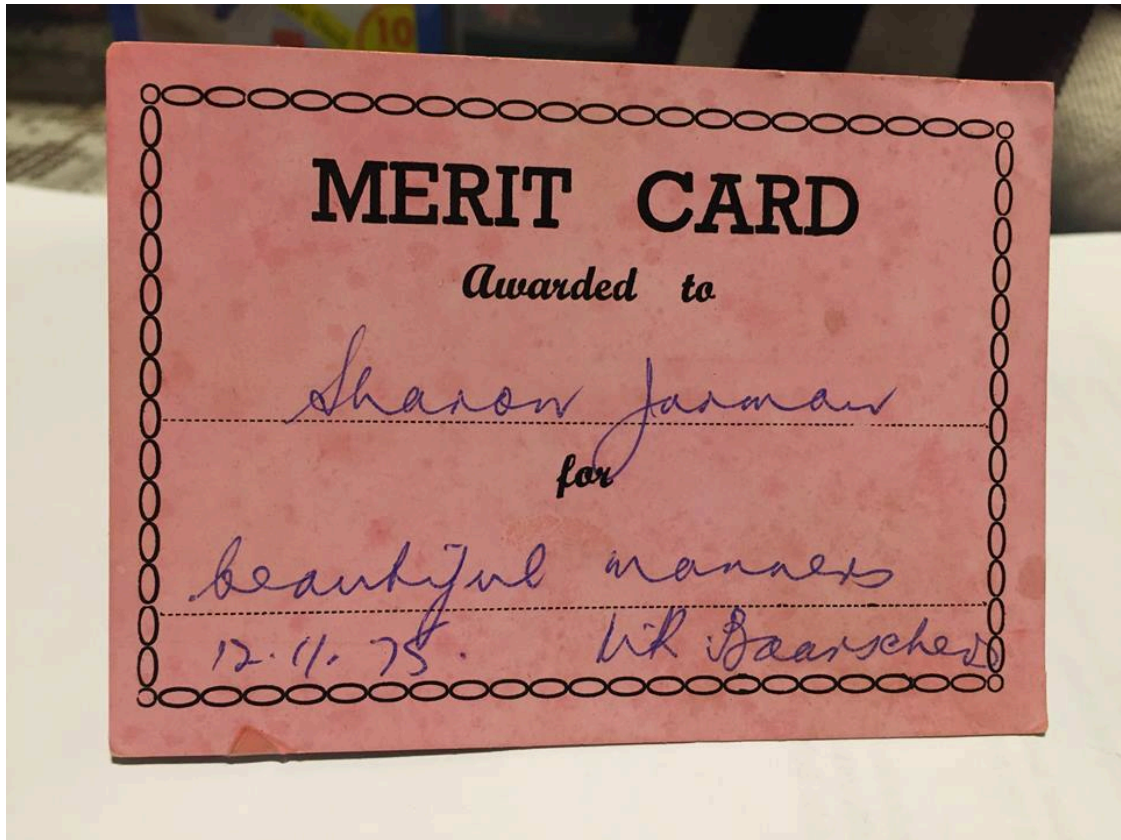 10
MERIT CARD
Awarded to
Sharon Jarman
for
beautiful manners
12.11.75.